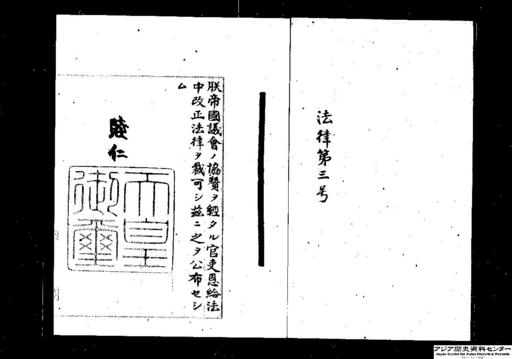 法律第三号
朕帝國議會ノ協贊ヲ經タル官吏恩給法
中改正法律ヲ裁可シ茲ニ之ヲ公布セシ
ム
睦仁
天皇
御璽
アジア歴史資料センター
Japan Center for Asian Historical Records